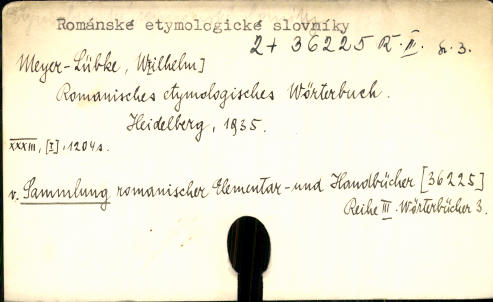 Románské etymologické slovníky
2+ 36225 R. III. h. 3.
Meyer-Lübke, W[ilhelm]
Romanisches etymologisches Wörterbuch.
Heidelberg, 1935.
XXXIII, [I], 1204 s.
v. Sammlung romanischer Elementar- und Handbücher [36225]
Reihe III. Wörterbücher 3.